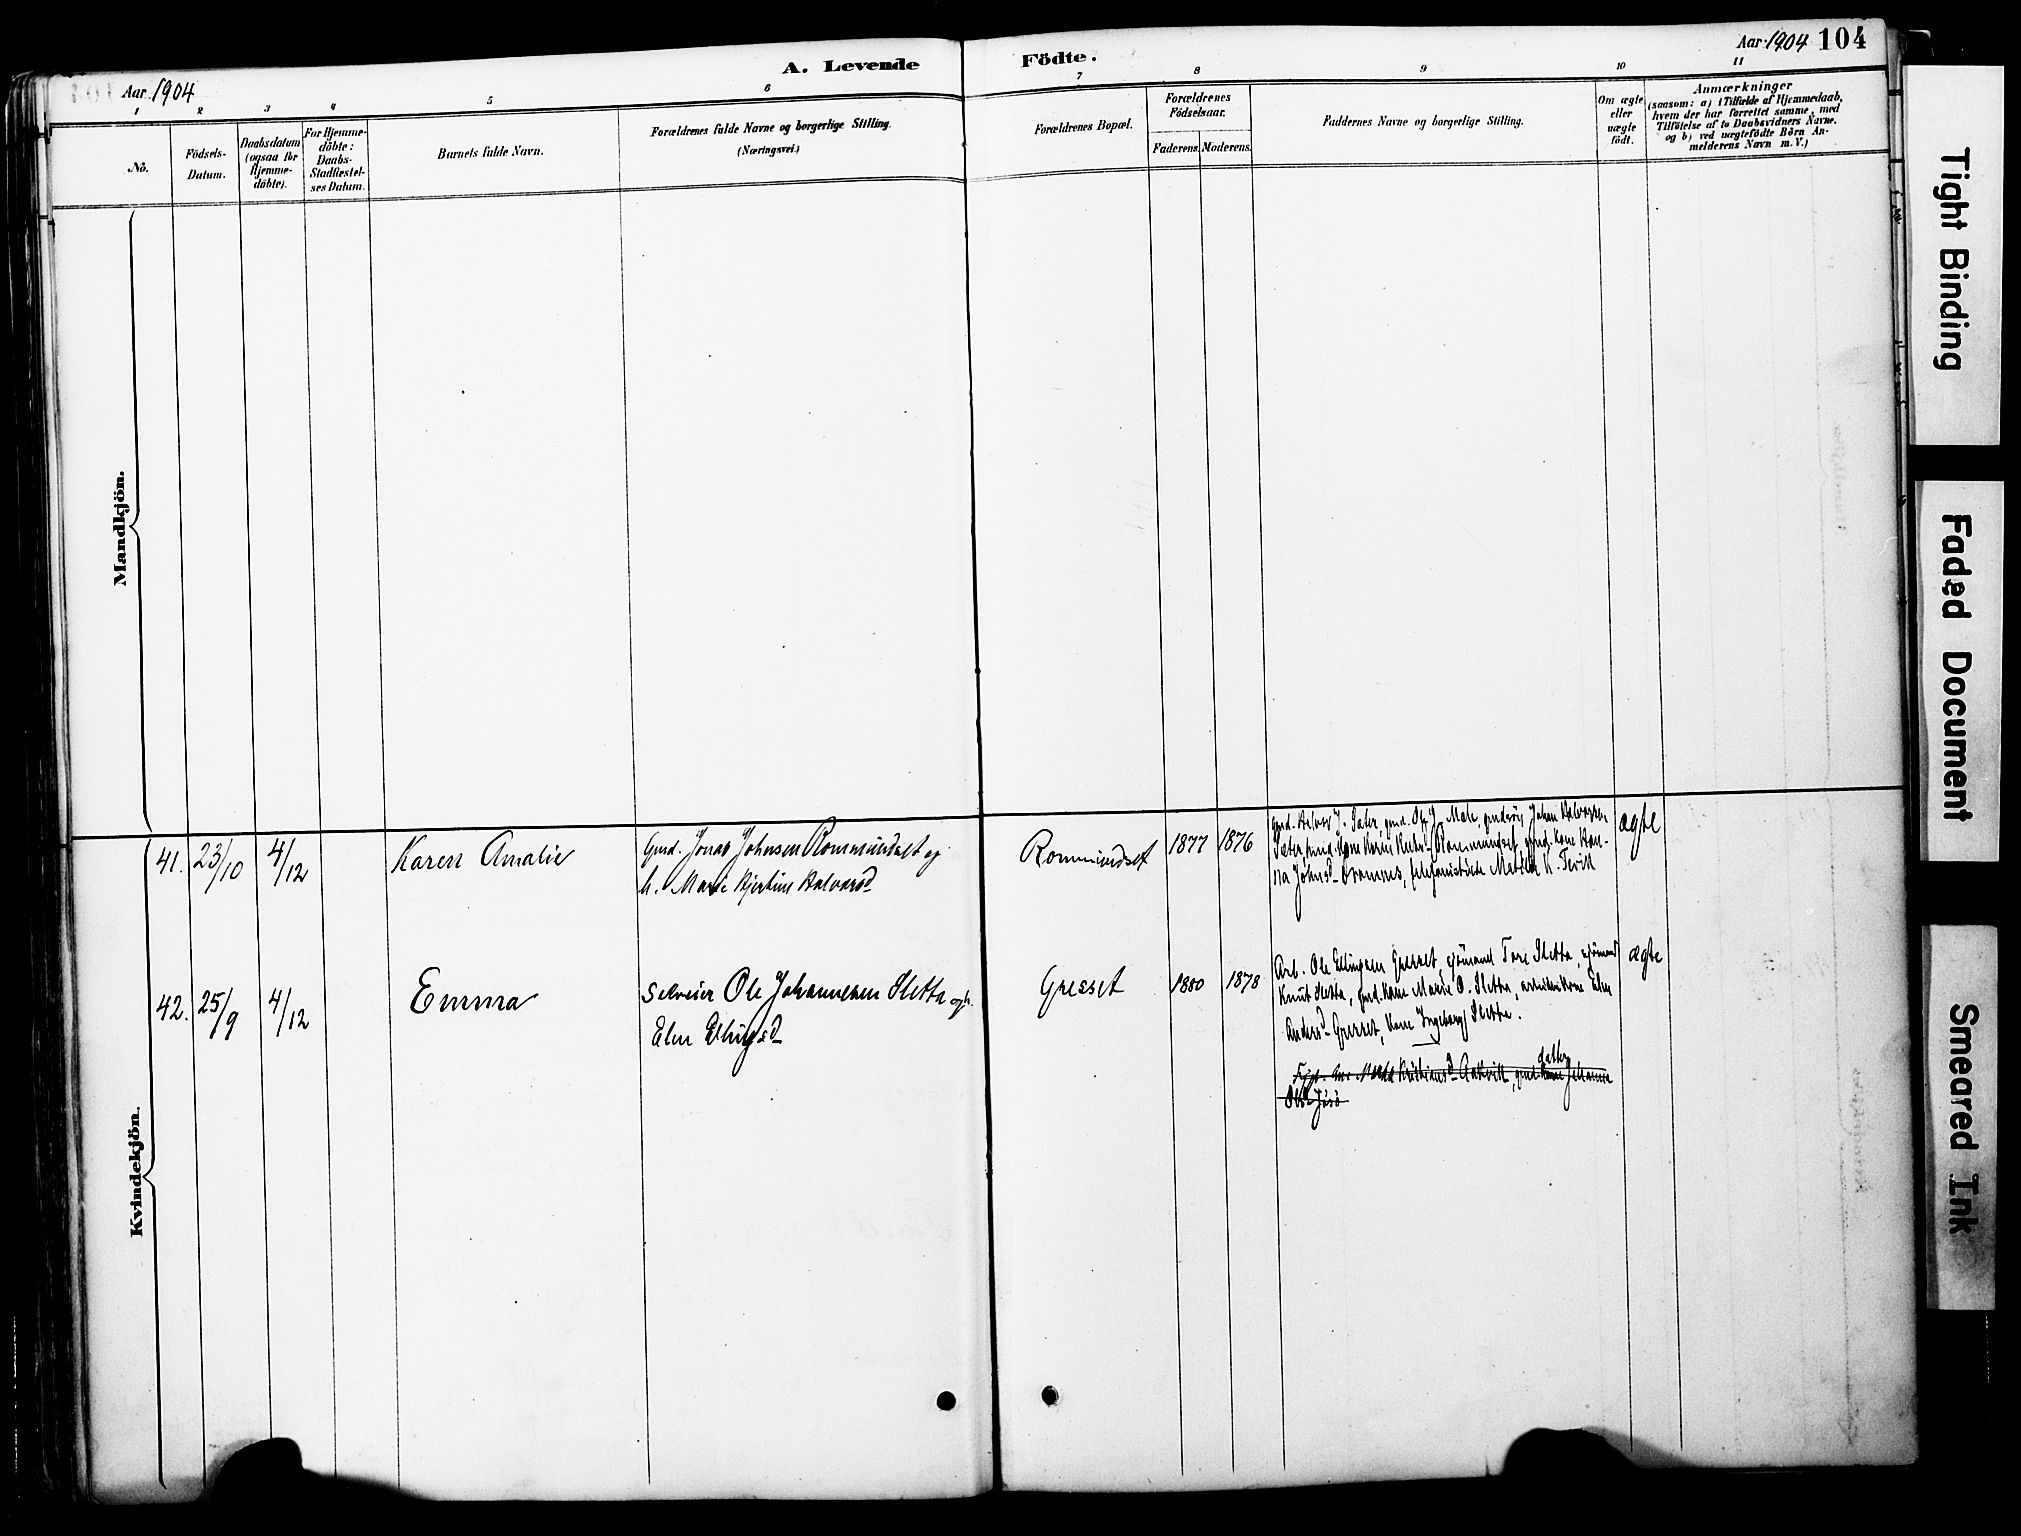 Aar 1904
A. Levende
Födte.
Aar 1904 104
1 2 3 4 5 6 7 8 9 10 11
No.
Födsels-
Datum.
Daabsdatum
(ogsaa for
Hjemme-
döbte).
For Hjemme-
döbte:
Daabs-
Stadfæstel-
ses Datum.
Barnets fulde Navn.
Forældrenes fulde Navne og borgerlige Stilling.
(Næringsvei.)
Forældrenes Bopæl.
Forældrenes
Födselsaar.
Faderens. Moderens.
Faddernes Navne og borgerlige Stilling.
Om ægte
eller
uægte
födt.
Anmærkninger
(saasom: a) i Tilfælde af Hjemmedaab,
hvem der har forrettet samme, med
Tilföielse af to Daabsvidners Navne.
og b) ved uægtefödte Börn An-
melderens Navn m. V.)
Mandkjön.
Kvindekjön.
41. 23/10 4/12 Karen Amalie
Gmd. Jonas Johnsen Rommundset og
h. Marie Kjerstine Halvorsd
Rommundset 1877 1876
Sæter, gmd. kone Karen
na Johnsd
ægte
42. 25/9 4/12 Emma
Selveier Ole Johannesen Sletta og h.
Elen Ellingsd
Gresset 1880 1878
Arb. Ole Ellingsen Gresset, sjömand Tore Sletta, sjömand
Knut Sletta, gmd. kone Marie O. Sletta, arbeiderkone Elen
Andersd Gresset, kone Ingeborg Sletta.
datter
Kristiansd Aakvik, gmd. kone Johanna
Olsd
ægte
Tight Binding
Faded Document
Smeared Ink